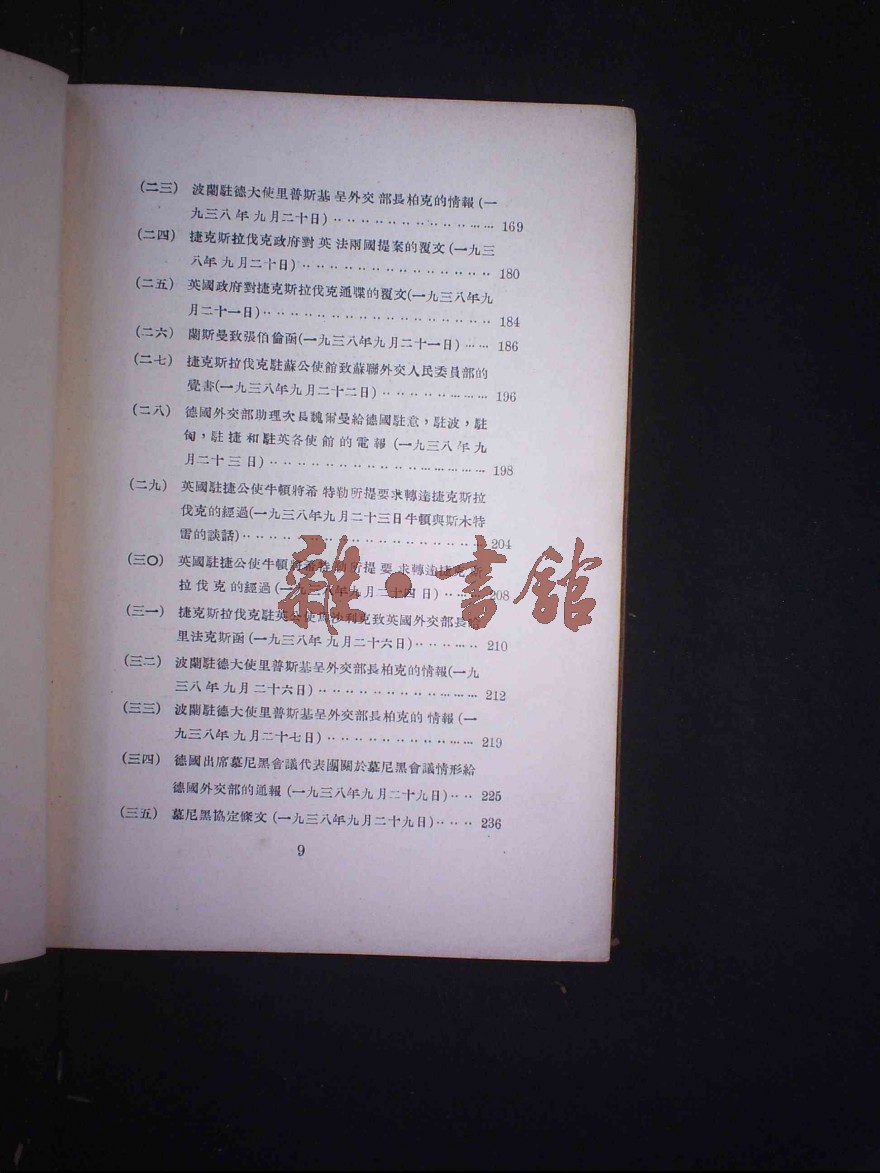 (二三) 波蘭駐德大使里普斯基呈外交部長柏克的情報(一
九三八年九月二十日)‥‥‥‥‥‥‥‥‥‥…… 169
(二四) 捷克斯拉伐克政府對英法兩國提案的覆文(一九三
八年九月二十日)‥‥‥‥‥‥‥‥‥‥‥‥‥‥ 180
(二五) 英國政府對捷克斯拉伐克通牒的覆文(一九三八年九
月二十一日)‥‥‥‥‥‥‥‥‥‥‥‥‥‥‥‥ 184
(二六) 蘭斯曼致張伯倫函(一九三八年九月二十一日)…‥ 186
(二七) 捷克斯拉伐克駐蘇公使館致蘇聯外交人民委員部的
覺書(一九三八年九月二十二日)‥‥‥‥‥……… 196
(二八) 德國外交部助理次長魏爾曼給德國駐意,駐波,駐
匈,駐捷和駐英各使館的電報(一九三八年九
月二十三日)‥‥‥‥‥‥‥‥‥‥‥…………… 198
(二九) 英國駐捷公使牛頓將希特勒所提要求轉達捷克斯拉
伐克的經過(一九三八年九月二十三日牛頓與斯木特
雷的談話)‥‥‥‥‥‥‥‥‥‥‥‥‥‥‥‥… 204
(三〇) 英國駐捷公使牛頓將希特勒所提要求轉達捷克斯
拉伐克的經過(一九三八年九月二十四日)‥‥‥ 208
(三一) 捷克斯拉伐克駐英公使馬沙利克致英國外交部長哈
里法克斯函(一九三八年九月二十六日)‥‥‥‥ 210
(三二) 波蘭駐德大使里普斯基呈外交部長柏克的情報(一九
三八年九月二十六日)‥‥‥‥‥‥‥‥‥……… 212
(三三) 波蘭駐德大使里普斯基呈外交部長柏克的情報(一
九三八年九月二十七日)‥‥‥‥‥‥‥‥‥…… 219
(三四) 德國出席慕尼黑會議代表團關於慕尼黑會議情形給
德國外交部的通報(一九三八年九月二十九日)‥‥ 225
(三五) 慕尼黑協定條文(一九三八年九月二十九日)‥‥‥ 236
9
雜·書館